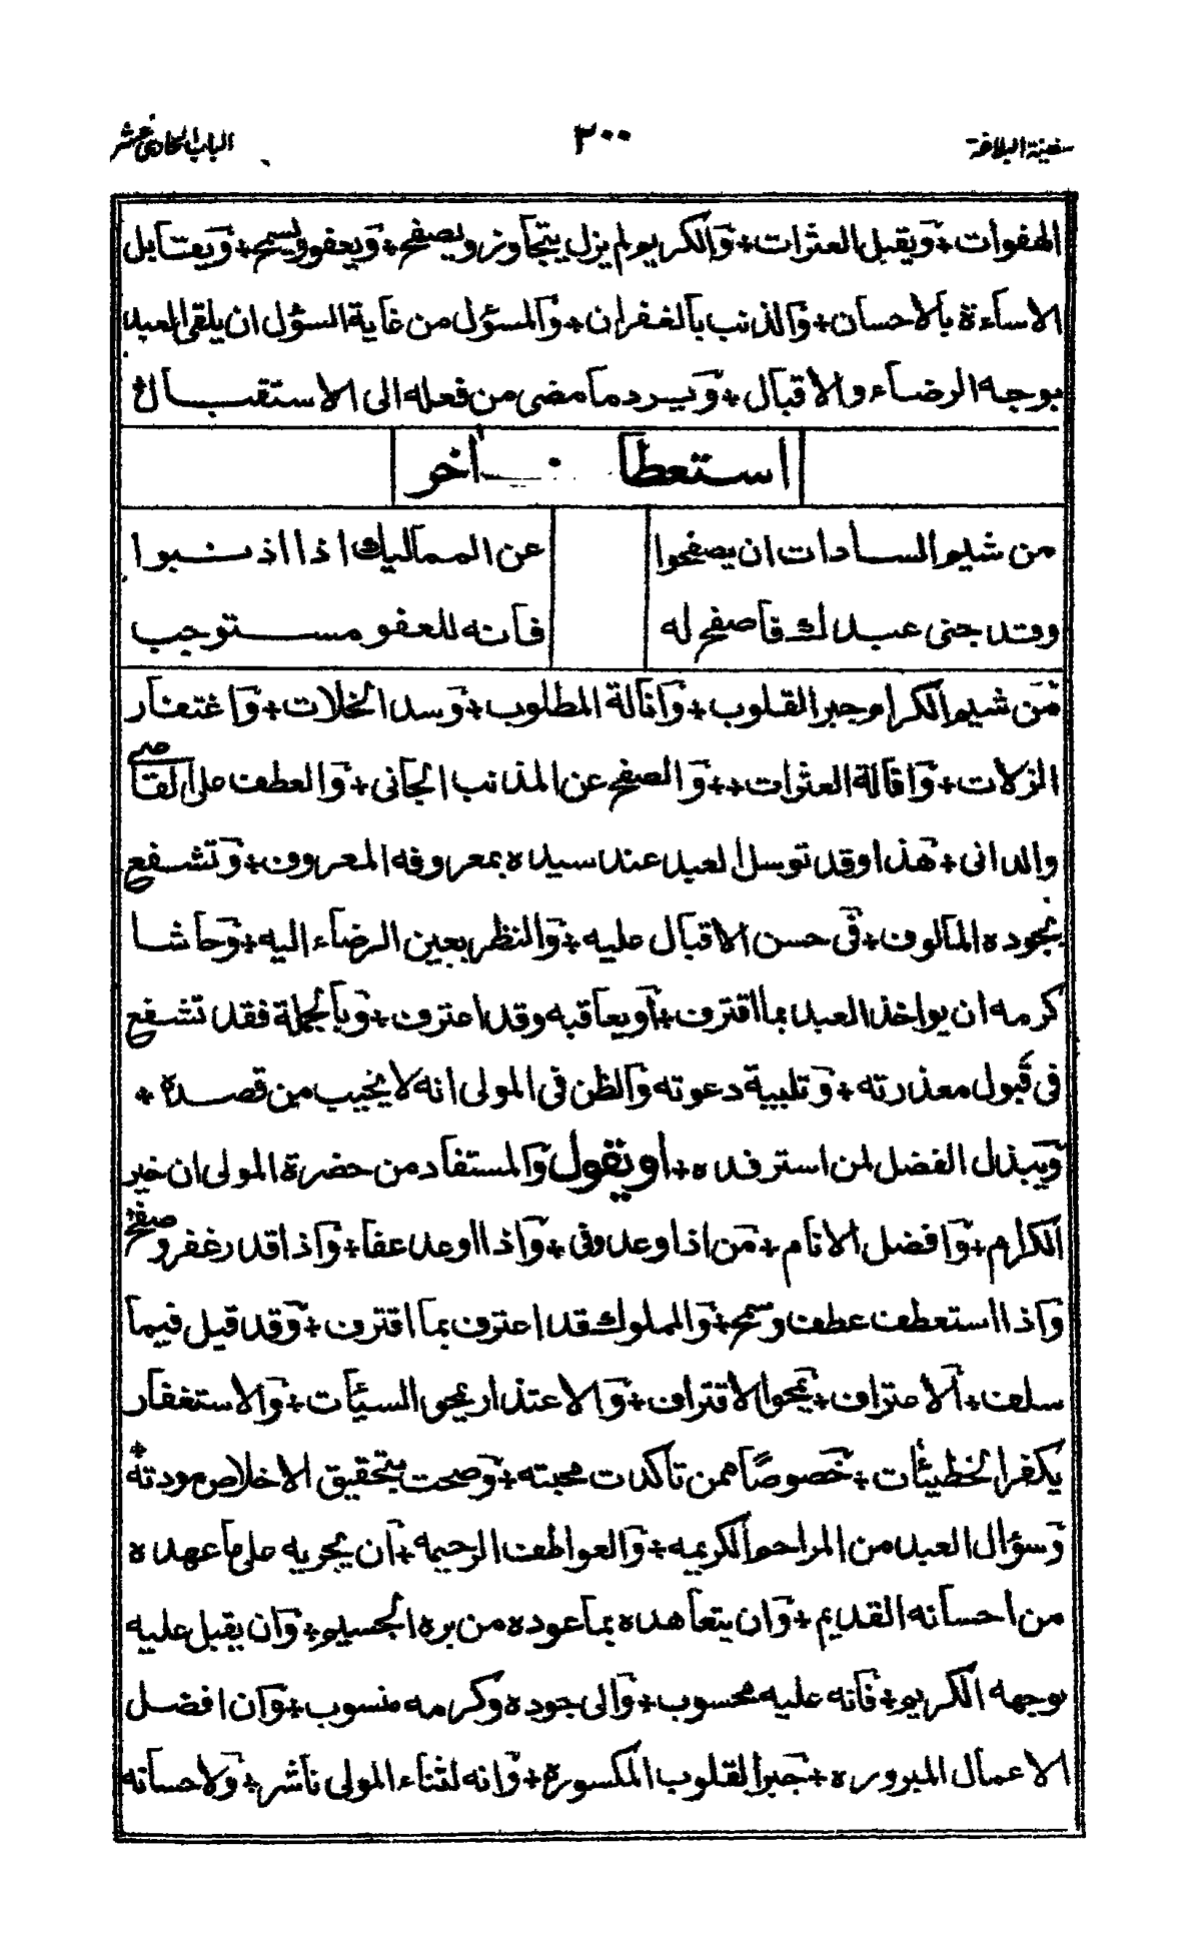 سفينة البلاغة
٢٠٠
الباب الحادي عشر
الهفوات + ويقبل العثرات + والكريم لم يزل يتجاوز ويصفح + ويعفو ويسمح + ويقابل
الاساءة بالاحسان + والذنب بالغفران + والمسؤل من غاية السؤل ان يلقى العبد
بوجه الرضاء والاقبال + ويرد ما مضى من فعله الى الاستقبال +
استعطا آخر
من شيم السادات ان يصفحوا عن المماليك اذا اذنبوا
وقد جنى عبدك فاصفح له فانه للعفو مستوجب
مَن شيم الكرام جبر القلوب + وانالة المطلوب + وسد الخلات + واغتفار
الزلات + واقالة العثرات ++ والصفح عن المذنب الجانى + والعطف على القاصى
والدانى + هذا وقد توسل العبد عند سيده بمعروفه المعروف + وتشفع
بجوده المالوف + فى حسن الاقبال عليه + والنظر بعين الرضاء اليه + وحاشا
كرمه ان يواخذ العبد بما اقترف + او يعاقبه وقد اعترف + وبالجملة فقد تشفع
فى قبول معذرته + وتلبية دعوته والظن فى المولى انه لا يخيب من قصده +
ويبذل الفضل لمن استرفده + او يقول والمستفاد من حضرة المولى ان خير
الكرام + وافضل الانام + من اذا وعد وفى + واذا اوعد عفا + واذا قدر غفر وصفح +
واذا استعطف عطف وسمح + والمملوك قد اعترف بما اقترف + وقد قيل فيما
سلف + الاعتراف + يمحو الاقتراف + والاعتذار يمحى السيئات + والاستغفار
يكفر الخطيئات + خصوصًا ممن تاكدت محبته + وصحت بتحقيق الاخلاص مودته +
وسؤال العبد من المراحم الكريمه + والعواطف الرحيمه + ان يجريه على ما عهده
من احسانه القديم + وان يتعاهده بما عوده من بره الجسيم + وان يقبل عليه
بوجهه الكريم + فانه عليه محسوب + والى جوده وكرمه منسوب + وان افضل
الاعمال المبروره + جبر القلوب المكسورة + وانه لثناء المولى ناشر + ولاحسانه